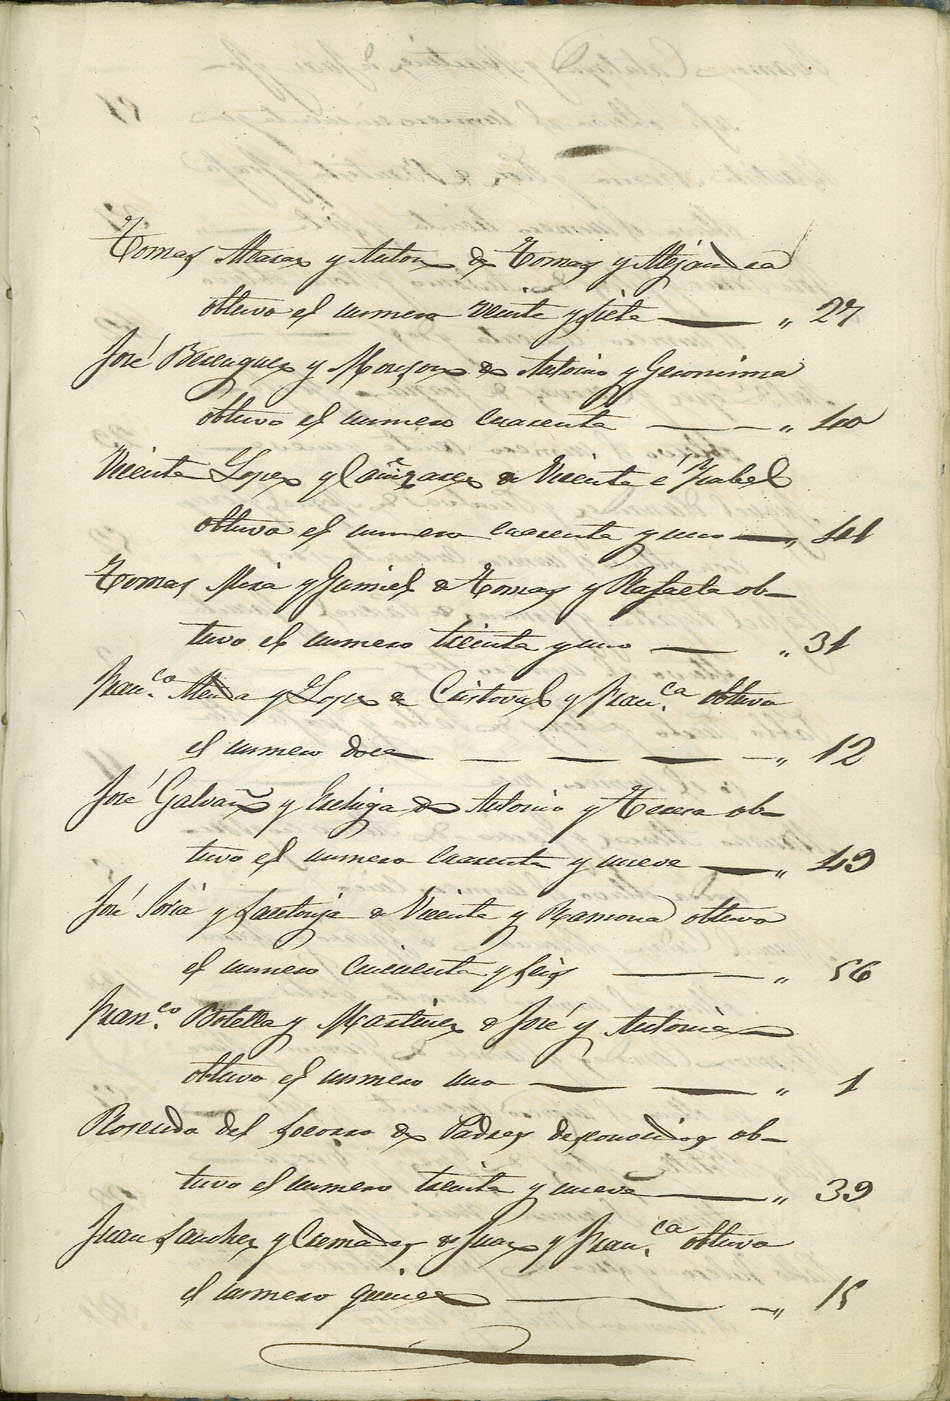 Tomas Alvarez y Anton de Tomas y Alejandra
obtuvo el numero veinte y siete " 27
José Berenguer y Monzon de Antonio y Geronima
obtuvo el numero cuarenta " 40
Vicente Lopez y Cañizares de Vicente é Ysabel
obtuvo el numero cuarenta y uno " 41
Tomas Mira y Gumiel de Tomas y Rafaela ob-
tuvo el numero treinta y uno " 31
Fran.co y Lopez de Cristoval y Fran.ca obtuvo
el numero doce " 12
José Galvañ y de Antonio y Teresa ob-
tuvo el numero cuarenta y nueve " 49
José Soria y Santonja de Vicente y Ramona obtuvo
el numero cincuenta y seis " 56
Fran.co Botella y Martinez de José y Antonia
obtuvo el numero uno " 1
Rosendo del Socorro de Padres desconocidos ob-
tuvo el numero treinta y nueve " 39
Juan Sanchez y Cremades de Juan y Fran.ca obtuvo
el numero quince " 15